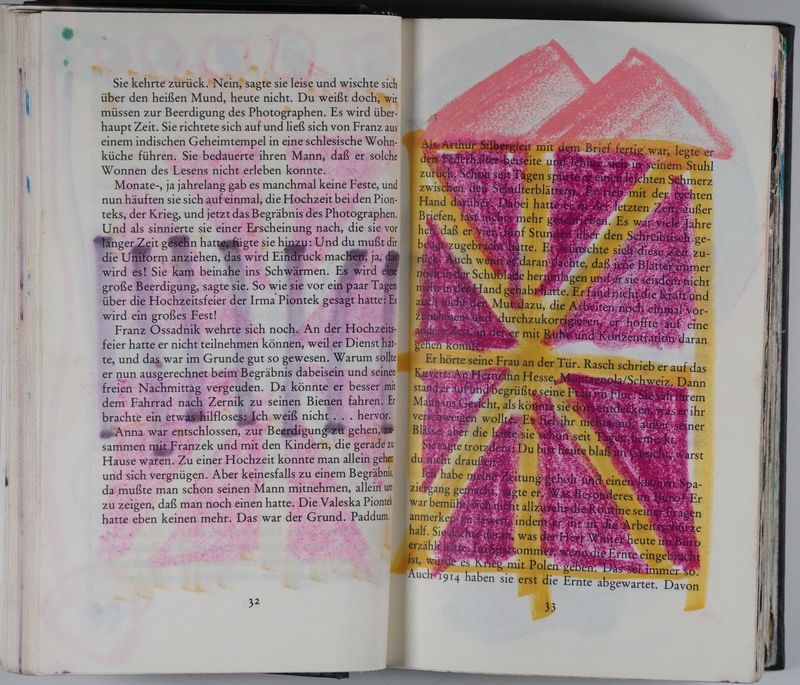 Sie kehrte zurück. Nein, sagte sie leise und wischte sich
über den heißen Mund, heute nicht. Du weißt doch, wir
müssen zur Beerdigung des Photographen. Es wird über-
haupt Zeit. Sie richtete sich auf und ließ sich von Franz aus
einem indischen Geheimtempel in eine schlesische Wohn-
küche führen. Sie bedauerte ihren Mann, daß er solche
Wonnen des Lesens nicht erleben konnte.
Monate-, ja jahrelang gab es manchmal keine Feste, und
nun häuften sie sich auf einmal, die Hochzeit bei den Pion-
teks, der Krieg, und jetzt das Begräbnis des Photographen.
Und als sinnierte sie einer Erscheinung nach, die sie vor
langer Zeit gesehn hatte, fügte sie hinzu: Und du mußt dir
die Uniform anziehen, das wird Eindruck machen, ja, das
wird es! Sie kam beinahe ins Schwärmen. Es wird eine
große Beerdigung, sagte sie. So wie sie vor ein paar Tagen
über die Hochzeitsfeier der Irma Piontek gesagt hatte: Es
wird ein großes Fest!
Franz Ossadnik wehrte sich noch. An der Hochzeits-
feier hatte er nicht teilnehmen können, weil er Dienst hat-
te, und das war im Grunde gut so gewesen. Warum sollte
er nun ausgerechnet beim Begräbnis dabeisein und seinen
freien Nachmittag vergeuden. Da könnte er besser mit
dem Fahrrad nach Zernik zu seinen Bienen fahren. Er
brachte ein etwas hilfloses: Ich weiß nicht . . . hervor.
Anna war entschlossen, zur Beerdigung zu gehen, zu-
sammen mit Franzek und mit den Kindern, die gerade zu
Hause waren. Zu einer Hochzeit konnte man allein gehen
und sich vergnügen. Aber keinesfalls zu einem Begräbnis,
da mußte man schon seinen Mann mitnehmen, allein um
zu zeigen, daß man noch einen hatte. Die Valeska Piontek
hatte eben keinen mehr. Das war der Grund. Paddum.
32
3
Als Arthur Silbergleit mit dem Brief fertig war, legte er
den Federhalter beiseite und lehnte sich in seinem Stuhl
zurück. Schon seit Tagen spürte er einen leichten Schmerz
zwischen den Schulterblättern. Er rieb mit der rechten
Hand darüber. Dabei hatte er in der letzten Zeit, außer
Briefen, fast nichts mehr geschrieben. Es war viele Jahre
her, daß er vier, fünf Stunden über den Schreibtisch ge-
beugt zugebracht hatte. Er wünschte sich diese Zeit zu-
rück. Auch wenn er daran dachte, daß jene Blätter immer
noch in der Schublade herumlagen und er sie seitdem nicht
mehr in der Hand gehabt hatte. Er fand nicht die Kraft und
auch nicht den Mut dazu, die Arbeiten noch einmal vor-
zunehmen und durchzukorrigieren, er hoffte auf eine
andere Zeit, in der er mit Ruhe und Konzentration daran
gehen konnte.
Er hörte seine Frau an der Tür. Rasch schrieb er auf das
Kuvert: An Hermann Hesse, Montagnola/Schweiz. Dann
stand er auf und begrüßte seine Frau im Flur. Sie sah ihrem
Mann ins Gesicht, als könnte sie dort entdecken, was er ihr
verschweigen wollte. Es fiel ihr nichts auf, außer seiner
Blässe, aber die hatte sie schon seit Tagen bemerkt.
Sie sagte trotzdem: Du bist heute blaß im Gesicht, warst
du nicht draußen?
Ich habe meine Zeitung geholt und einen kleinen Spa-
ziergang gemacht, sagte er. Was Besonderes im Büro? Er
war bemüht, sich nicht allzusehr die Routine seiner Fragen
anmerken zu lassen, indem er ihr in die Arbeitsschürze
half. Sie dachte daran, was der Herr Winter heute im Büro
erzählt hatte. Im Spätsommer, wenn die Ernte eingebracht
ist, würde es Krieg mit Polen geben. Das sei immer so.
Auch 1914 haben sie erst die Ernte abgewartet. Davon
33